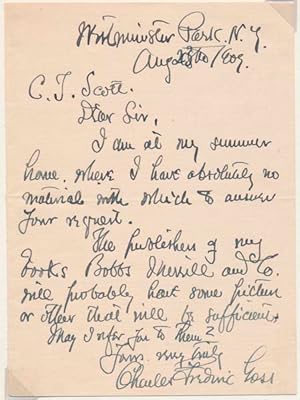 Westminster Park. N.Y.
Aug 23rd/09.
C. T. Scott.
Dear Sir,
I am at my summer
home where I have absolutely no
material with which to answer
your request.
The publishers of my
books Bobbs Merrill and Co.
will probably have some picture
or other that will be sufficient.
May I refer you to them?
Yours very truly
Charles Frederic Goss